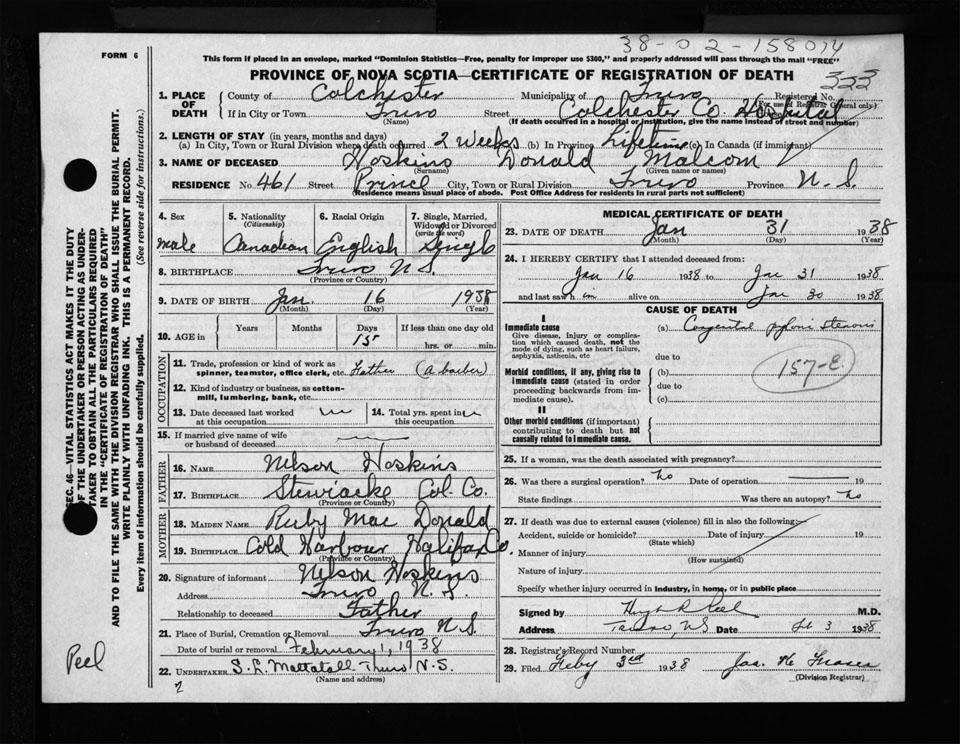 38-02-158014
FORM 6
This form if placed in an envelope, marked "Dominion Statistics—Free, penalty for improper use $300," and properly addressed will pass through the mail "FREE"
PROVINCE OF NOVA SCOTIA—CERTIFICATE OF REGISTRATION OF DEATH
333
1. PLACE OF DEATH
County of Colchester Municipality of Truro Registered No.
(For use of Registrar General only)
If in City or Town Truro Street Colchester Co. Hospital
(Name) (If death occurred in a hospital or institution, give the name instead of street and number)
2. LENGTH OF STAY (in years, months and days)
(a) In City, Town or Rural Division where death occurred 2 Weeks (b) In Province Lifetime (c) In Canada (if immigrant)
3. NAME OF DECEASED Hoskins Donald Malcom
(Surname) (Given name or names)
RESIDENCE No. 461 Street Prince City, Town or Rural Division Truro Province N.S.
(Residence means usual place of abode. Post Office Address for residents in rural parts not sufficient)
4. Sex
male
5. Nationality
(Citizenship)
Canadian
6. Racial Origin
English
7. Single, Married, Widowed or Divorced
(write the word)
Single
8. BIRTHPLACE Truro N.S.
(Province or Country)
9. DATE OF BIRTH Jan. 16 1938
(Month) (Day) (Year)
10. AGE in
Years Months Days If less than one day old
15
hrs. or min.
OCCUPATION
11. Trade, profession or kind of work as
spinner, teamster, office clerk, etc. Father (a barber)
12. Kind of industry or business, as cotton-
mill, lumbering, bank, etc.
13. Date deceased last worked
at this occupation
14. Total yrs. spent in
this occupation
15. If married give name of wife
or husband of deceased
FATHER
16. NAME Nelson Hoskins
17. BIRTHPLACE Stewiacke Col. Co.
(Province or Country)
MOTHER
18. MAIDEN NAME Ruby Mac Donald
19. BIRTHPLACE Cold Harbour Halifax Co.
(Province or Country)
20. Signature of informant Nelson Hoskins
Address Truro N.S.
Relationship to deceased Father
21. Place of Burial, Cremation or Removal Truro N.S.
Date of burial or removal February 1, 1938
22. UNDERTAKER S. L. Mattatall Truro N.S.
(Name and address)
MEDICAL CERTIFICATE OF DEATH
23. DATE OF DEATH Jan 31 1938
(Month) (Day) (Year)
24. I HEREBY CERTIFY that I attended deceased from:
Jan 16 1938 to Jan 31 1938
and last saw him alive on Jan 30 1938
CAUSE OF DEATH
I
Immediate cause
Give disease, injury or complica-
tion which caused death, not the
mode of dying, such as heart failure,
asphyxia, asthenia, etc
(a) Congenital pyloric stenosis
due to
Morbid conditions, if any, giving rise to
immediate cause (stated in order
proceeding backwards from im-
mediate cause).
(b)
due to
(c)
157-E
II
Other morbid conditions (if important)
contributing to death but not
causally related to immediate cause.
25. If a woman, was the death associated with pregnancy?
26. Was there a surgical operation? no Date of operation 19
State findings Was there an autopsy? no
27. If death was due to external causes (violence) fill in also the following:—
Accident, suicide or homicide? Date of injury 19
(State which)
Manner of injury
(How sustained)
Nature of injury
Specify whether injury occurred in industry, in home, or in public place
Signed by M.D.
Address Truro, NS Date 3 1938
28. Registrar's Record Number
29. Filed Feby 3rd 1938 Jas. H. Fraser
(Division Registrar)
SEC. 46—VITAL STATISTICS ACT MAKES IT THE DUTY
OF THE UNDERTAKER OR PERSON ACTING AS UNDER-
TAKER TO OBTAIN ALL THE PARTICULARS REQUIRED
IN THE "CERTIFICATE OF REGISTRATION OF DEATH"
AND TO FILE THE SAME WITH THE DIVISION REGISTRAR WHO SHALL ISSUE THE BURIAL PERMIT.
WRITE PLAINLY WITH UNFADING INK. THIS IS A PERMANENT RECORD.
Every item of information should be carefully supplied. (See reverse side for instructions.)
Peel
2